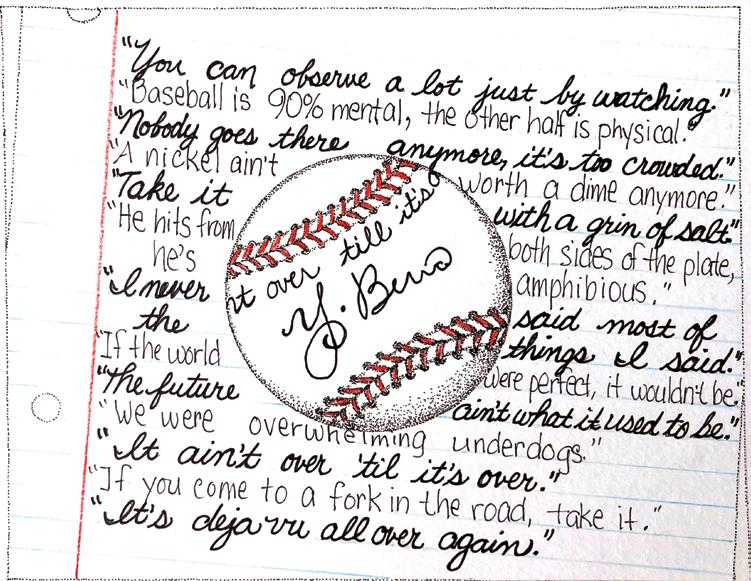 "You can observe a lot just by watching."
"Baseball is 90% mental, the other half is physical."
"Nobody goes there anymore, it's too crowded."
"A nickel ain't worth a dime anymore."
"Take it with a grin of salt"
"He hits from both sides of the plate,
he's amphibious."
"I never said most of
the things I said."
"If the world were perfect, it wouldn't be."
"The future ain't what it used to be."
"We were overwhelming underdogs."
"It ain't over 'til it's over."
"If you come to a fork in the road, take it."
"It's deja vu all over again."
over till it's
Y. Berra